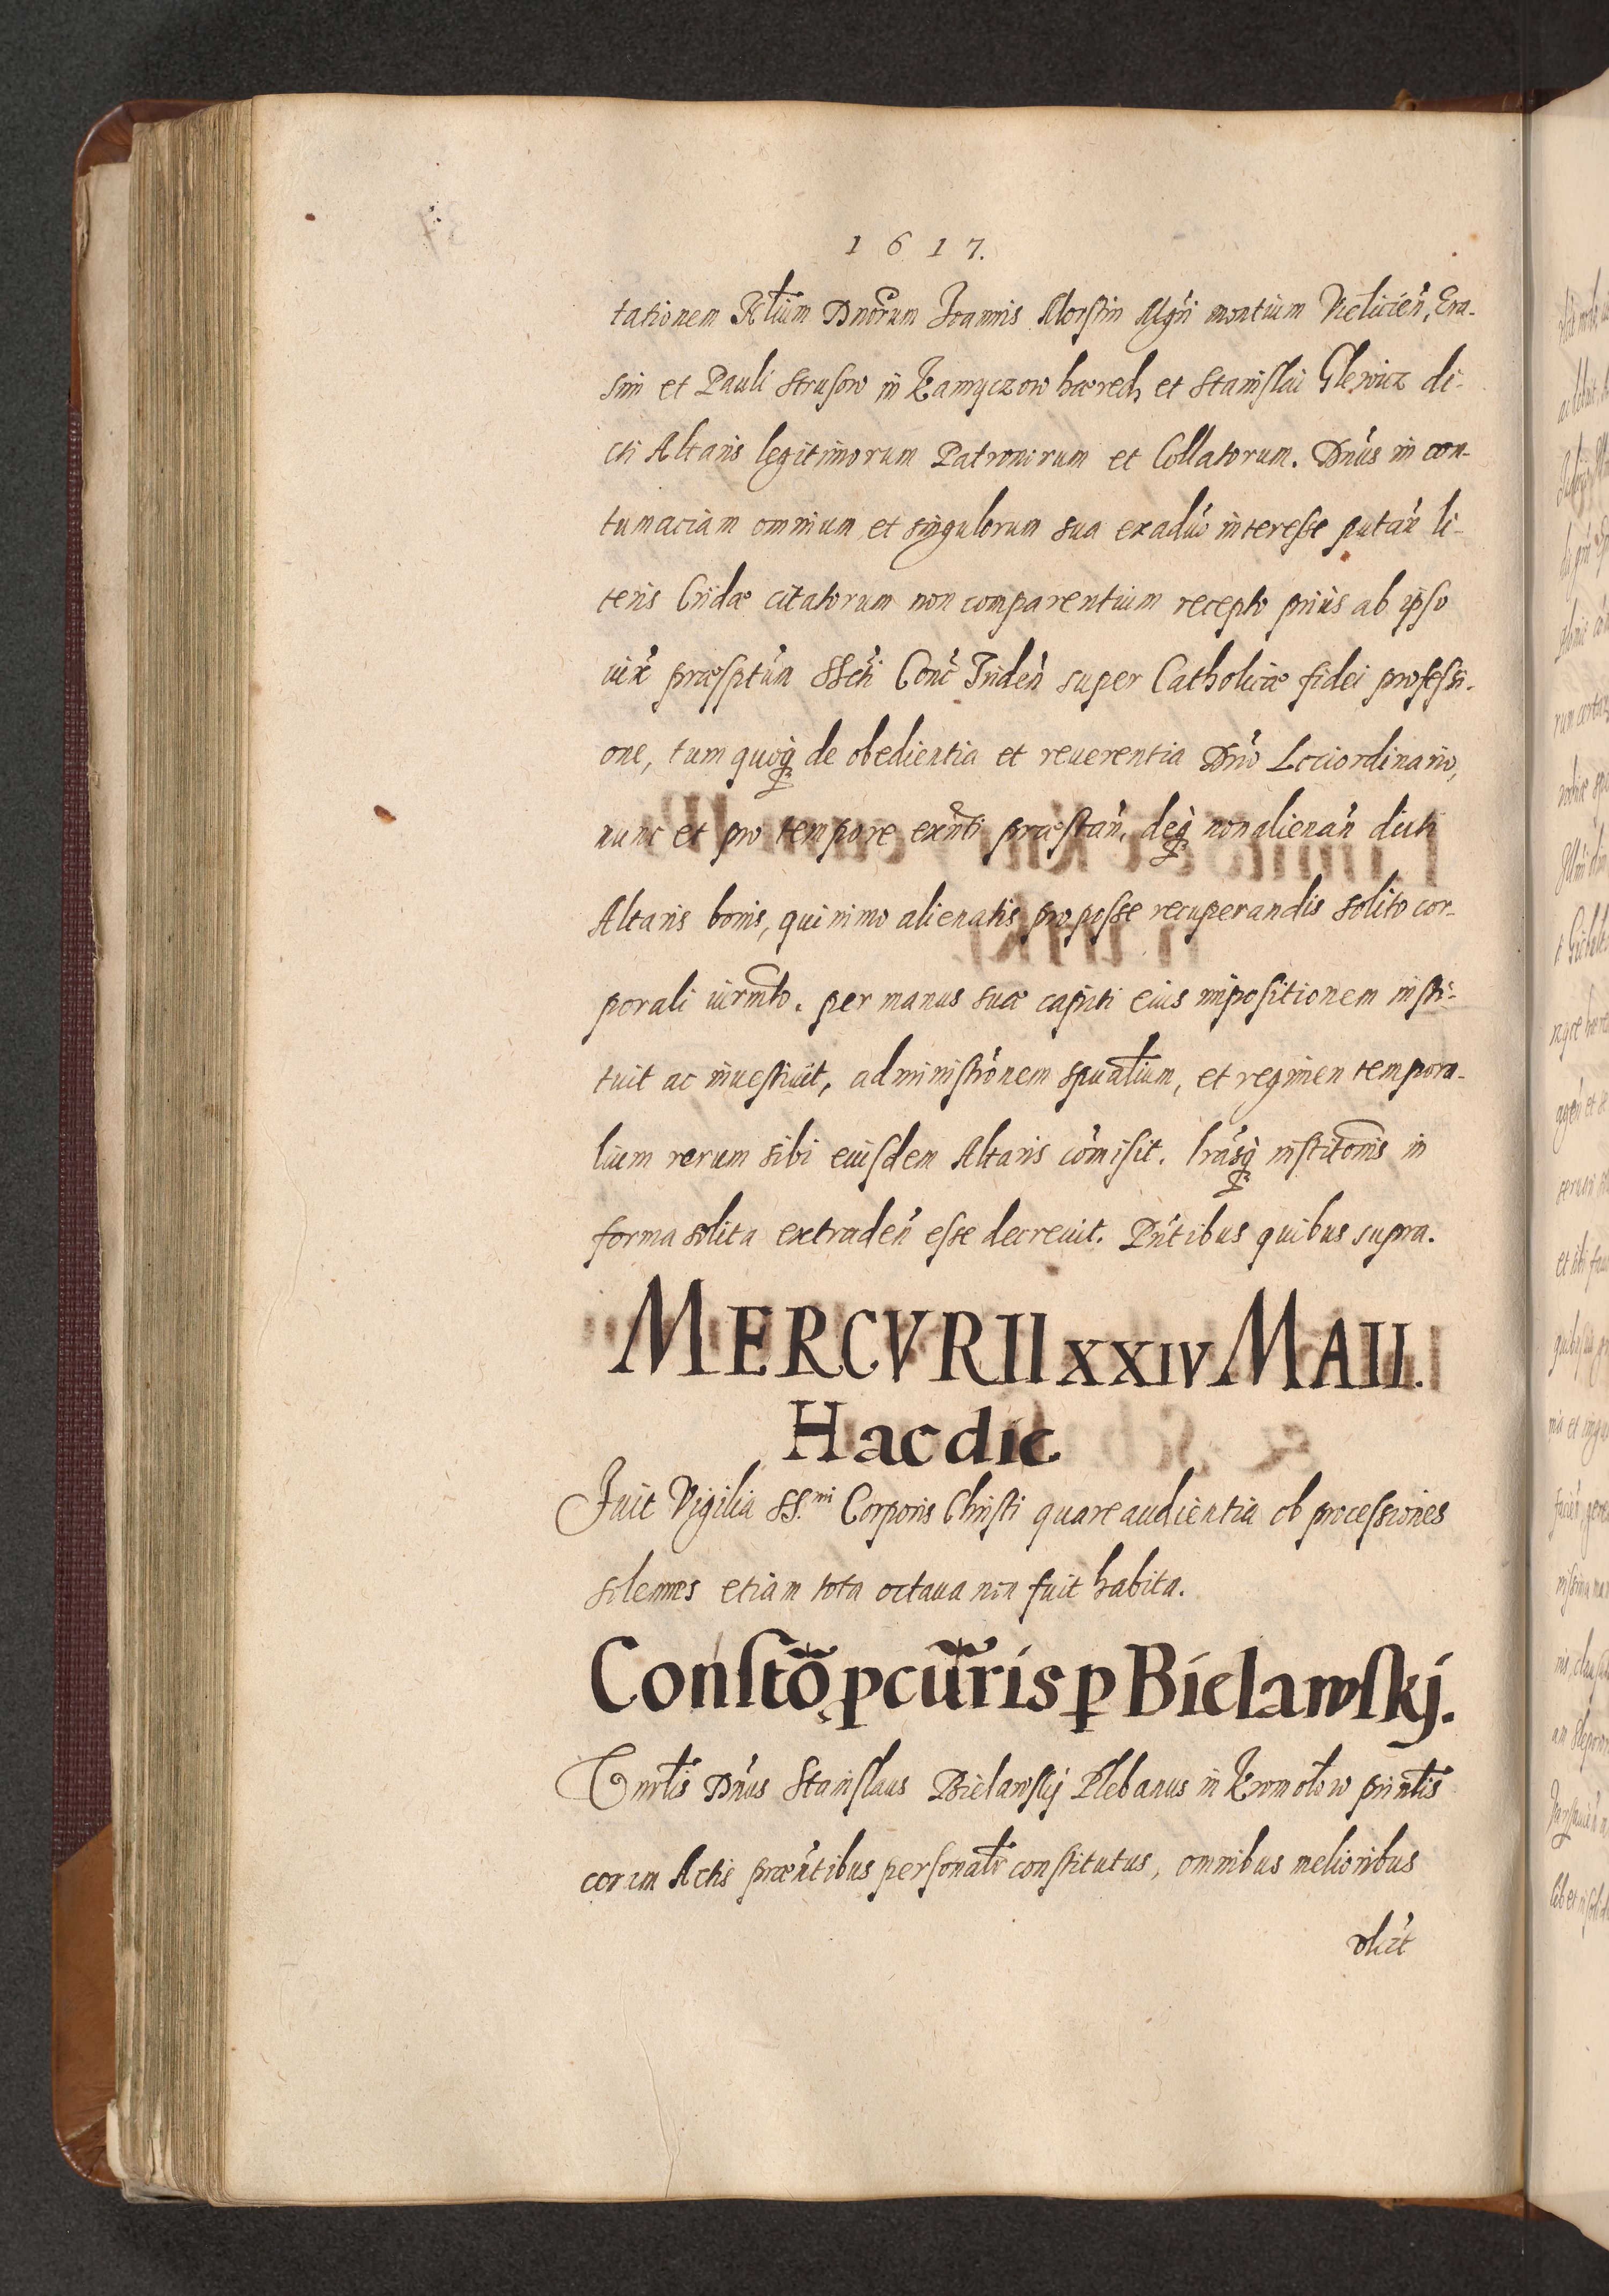 1617.
tationem Nlium Dnorum Joannis Morstin Mgri montium Vielicien̄, Era-
smi et Pauli Strusow in Kamyczow hæred, et Stanislai Glewicz di-
cti Altaris legitimorum Patronorum et Collatorum. Dn̄us in con-
tumaciam omnium et singulorum sua exaduo interesse putan̄ li-
teris Cridæ citatorum non comparentium recepto priùs ab ipso
iux̄ præsptūm SScti Conc̄ Triden̄ super Catholicæ fidei professi-
one, tum quoq de obedientia et reuerentia Dn̄o Lociordinario,
nunc et pro tempore exn̄ti præstan̄, deq non alienan̄ dicti
Altaris bonis, quinimo alienatis pro posse recuperandis solito cor-
porali iurm̄to. per manus suæ capiti eius impositionem insti-
tuit ac inuestiuit, administr̄onem spualium, et regimen tempora-
lium rerum sibi eiusdem Altaris com̄isit. lrāsq institonis in
forma solita extraden̄ esse decreuit. Pn̄tibus quibus supra.
MERCVRII XXIV MAII.
Hac die
Fuit Vigilia SS.mi Corporis Christi quare audientia ob processiones
solemnes etiam tota octaua non fuit habita.
Constō pcur̄is p Bielawskj.
Dn̄us Stanislaus Bielawskj Plebanus in Kromolow prin̄tis
coram Actis præn̄tibus personalr constitutus, omnibus melioribus